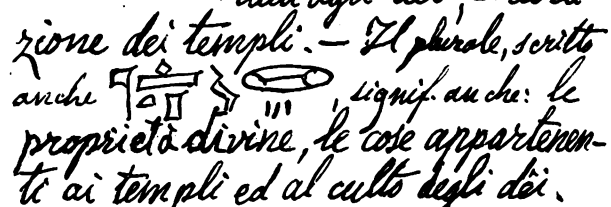 zione dei templi. — Il plurale, scritto
anche , signif. anche: le
proprietà divine, le cose appartenen-
ti ai templi ed al culto degli dêi.